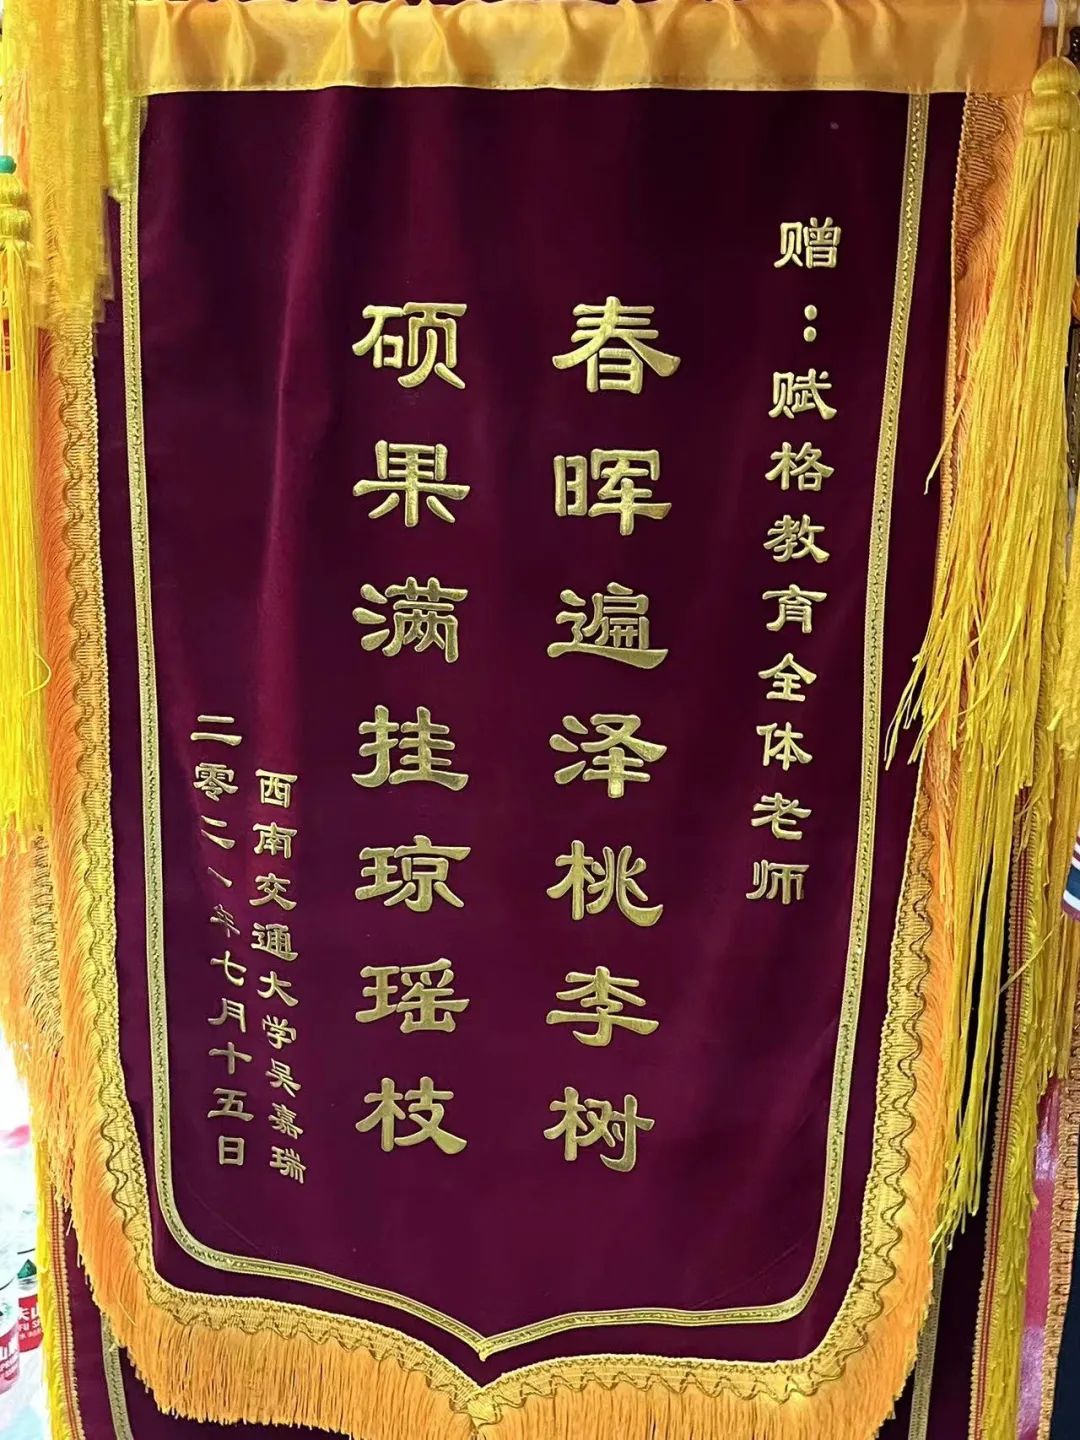 赠：赋格教育全体老师
春晖遍泽桃李树
硕果满挂琼瑶枝
西南交通大学吴嘉瑞
二零二、年七月十五日